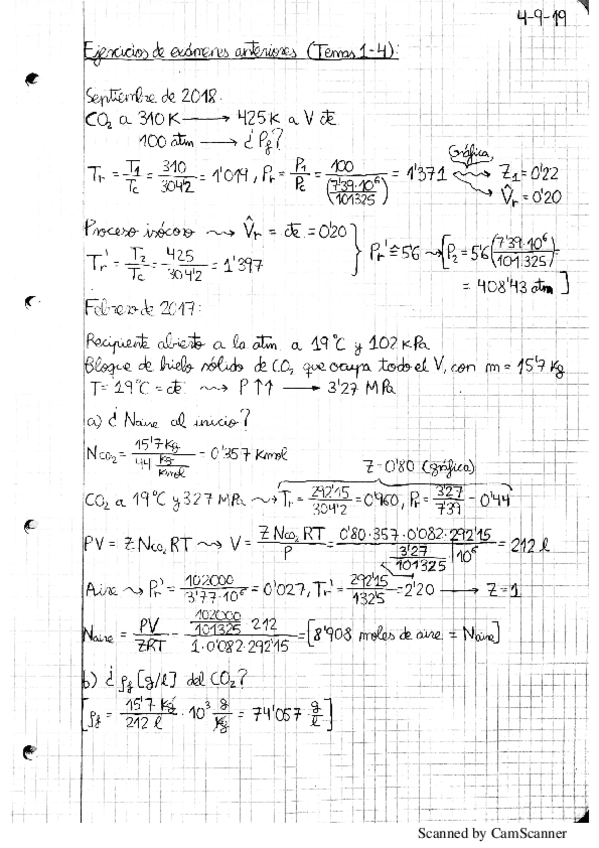 4-9-19
Ejercicios de exámenes anteriores (Temas 1-4):
Septiembre de 2018.
CO₂ a 310K → 425K a V cte
100 atm → ¿P_f?
T_r = T_1/T_c = 310/304'2 = 1'019, P_r = P_1/P_c = 100/(7'39·10⁶/101325) = 1'371 Gráfica Z_1 = 0'22
V̂_r = 0'20
Proceso isócoro ⇝ V̂_r = cte = 0'20
T_r' = T_2/T_c = 425/304'2 = 1'397 } P_r' ≅ 5'6 ⇝ [P_2 = 5'6 (7'39·10⁶/101.325) =
= 408'43 atm]
Febrero de 2017:
Recipiente abierto a la atm a 19°C y 102 KPa
Bloque de hielo sólido de CO₂ que ocupa todo el V, con m = 15'7 Kg
T = 19°C = cte ⇝ P↑↑ → 3'27 MPa
a) ¿N_aire al inicio?
N_CO₂ = 15'7 Kg / 44 Kg/Kmol = 0'357 Kmol
Z = 0'80 (gráfica)
CO₂ a 19°C y 3'27 MPa ⇝ T_r = 292'15/304'2 = 0'960, P_r = 3'27/7'39 = 0'44
PV = Z·N_CO₂RT ⇝ V = Z N_CO₂ RT / P = 0'80·357·0'082·292'15 / (3'27/101325 · 10⁶) = 212 l
Aire ⇝ P_r' = 102000/3'77·10⁶ = 0'027, T_r' = 292'15/132'5 = 2'20 → Z = 1
N_aire = PV/ZRT = (102000/101325 · 212) / (1·0'082·292'15) = [8'908 moles de aire = N_aire]
b) ¿ρ_f [g/l] del CO₂?
[ρ_f = 15'7 Kg / 212 l · 10³ g/Kg = 74'057 g/l]
Scanned by CamScanner